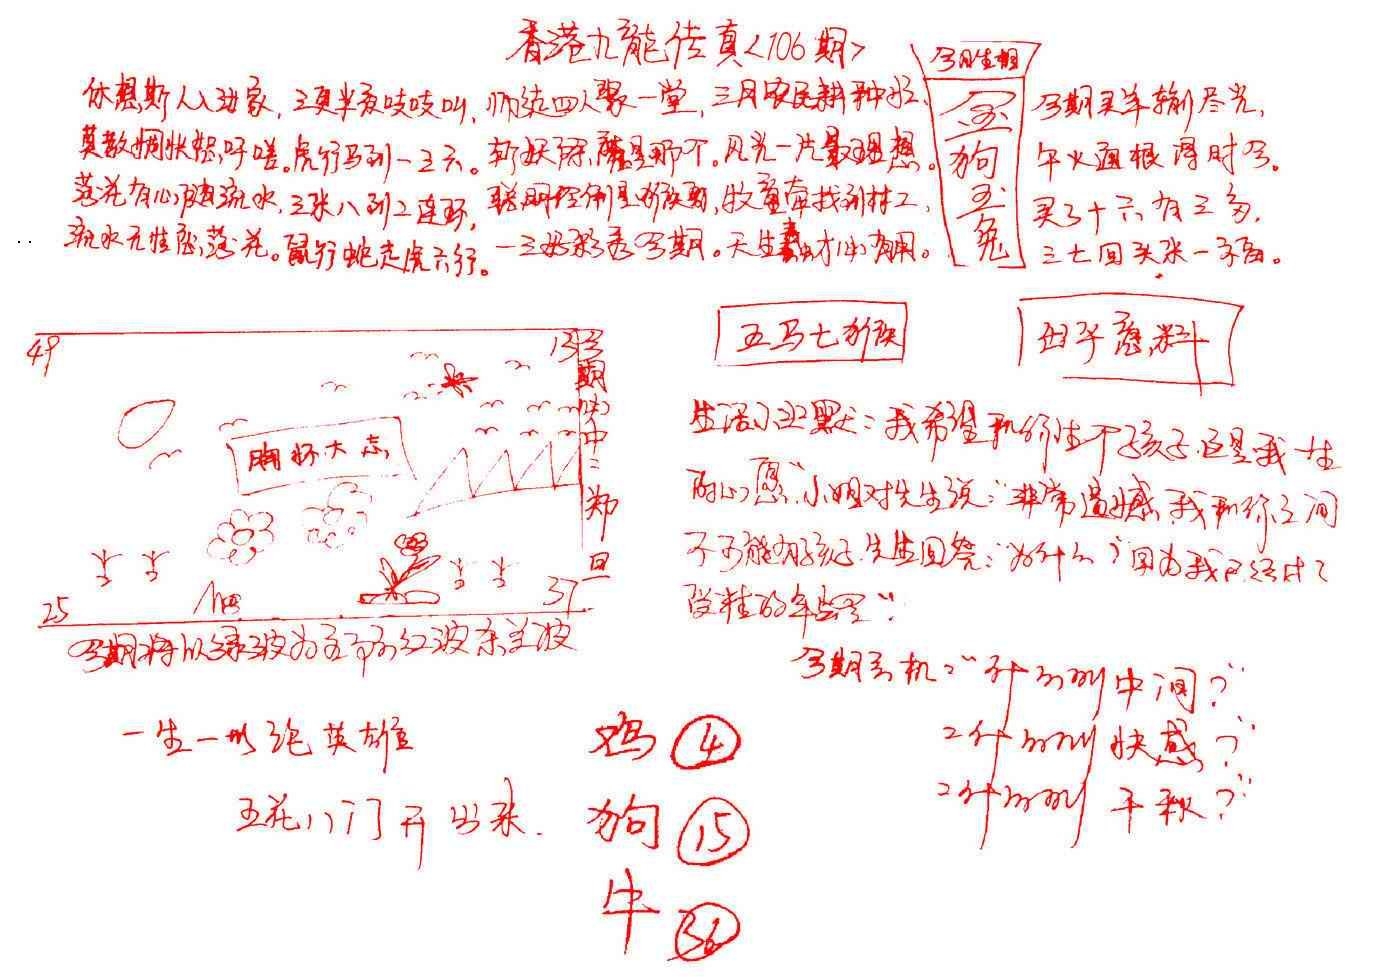 香港九龍传真<106期>
今期生相
金狗玉兔
休想斯人入动家，三更半夜吱吱叫，师徒四人聚一堂，三月农民耕种忙，
莫教惆怅怨吁嗟。虎行马到一三六。斩妖除魔是那个。风光一片最理想。
落花有心随流水，三来八到二连环，聪明伶俐是猴哥，牧童奔找到村工，
流水无情恋落花。鼠行蛇走虎六行。一三四彩透今期。天生蠢才小有用。
今期买羊输尽光，
午火通根得时令。
买了十六有三多，
三七回头来一家。
49
13
25
37
胸怀大志
今期史中：郑旦
今期将以绿波为主而红波东兰波
五马七猴
母子慰料
生活小幽默：我希望和你生个孩子，这是我一生
的心愿"小姐对先生说："非常遗憾，我和你之间
不可能有孩子，先生回答："为什么？"因为我已经成了
受精的年岁"
今期玄机："什么叫中间？"
"什么叫快感？"
"什么叫千秋？"
一生一世絶英雄
五花八门开出来．
鸡 4
狗 15
牛 36